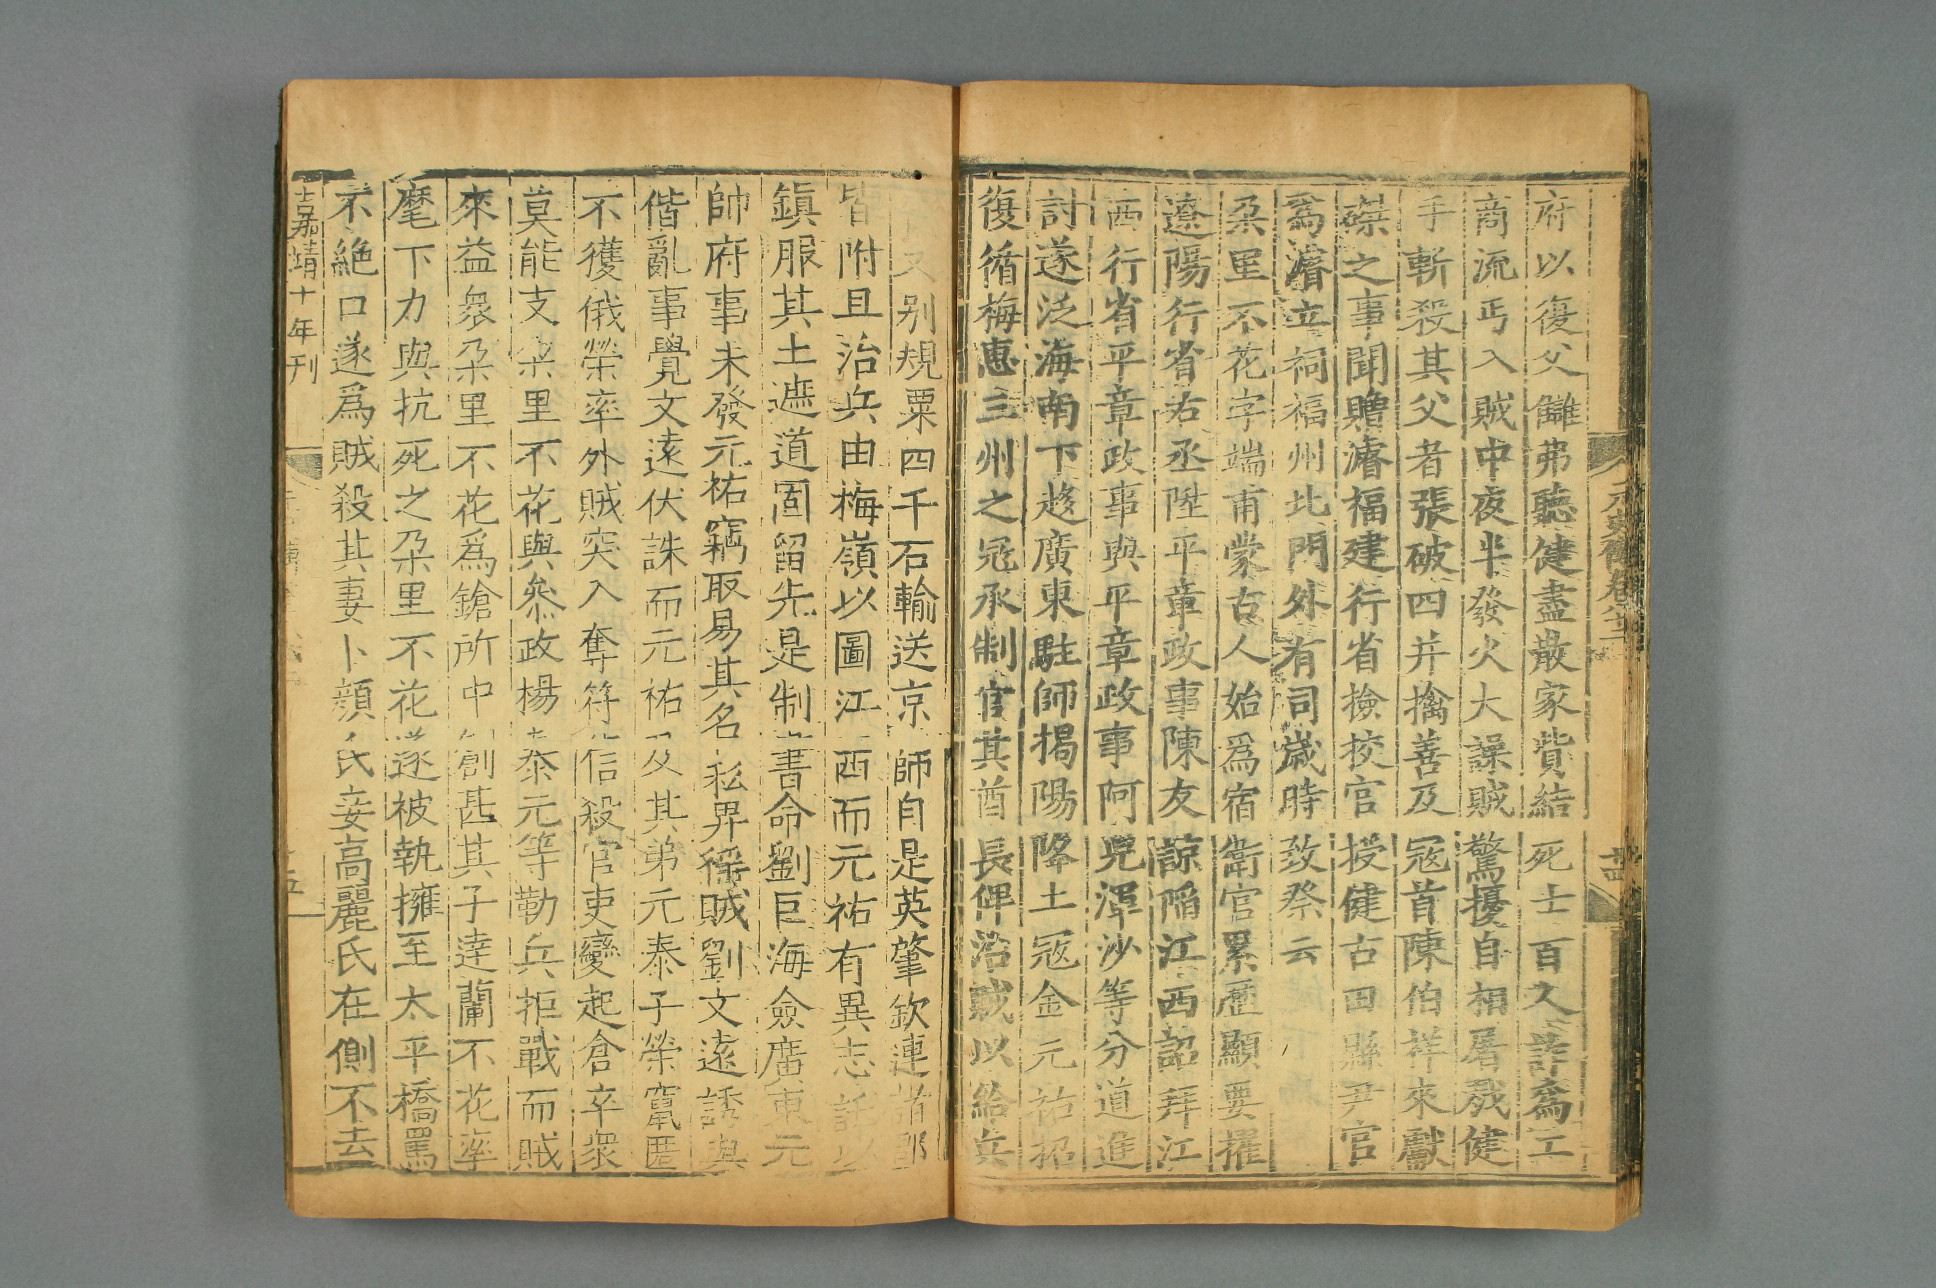 元史傳卷八十二
十四
府以復父讎弗聽健盡散家貲結死士百人詐爲工
商流丐入賊中夜半發火大譟賊驚擾自相屠戕健
手斬殺其父者張破四并擒善及冦首陳伯祥來獻
磔之事聞贈濬福建行省撿挍官授健古田縣尹官
爲濬立祠福州北門外有司歲時致祭云
朶里不花字端甫蒙古人始爲宿衛官累歷顯要擢
遼陽行省右丞陞平章政事陳友諒陷江西詔拜江
西行省平章政事與平章政事阿兒渾沙等分道進
討遂泛海南下趍廣東駐師揭陽降土冦金元祐招
復循梅惠三州之冦承制官其酋長俾治賊以給兵
又別規粟四千石輸送京師自是英肇欽連
皆附且治兵由梅嶺以圖江西而元祐有異志託以
鎮服其土遮道固留先是制書命劉巨海僉廣東元
帥府事未發元祐竊取易其名私畀徭賊劉文遠誘與
偕亂事覺文遠伏誅而元祐及其弟元泰子榮竄匿
不獲俄榮率外賊突入奪符信殺官吏變起倉卒衆
莫能支朶里不花與叅政楊泰元等勒兵拒戰而賊
來益衆朶里不花爲鎗所中創甚其子達蘭不花率
麾下力與抗死之朶里不花遂被執擁至太平橋罵
不絶口遂爲賊殺其妻卜顔氏妾高麗氏在側不去
嘉靖十年刊
五